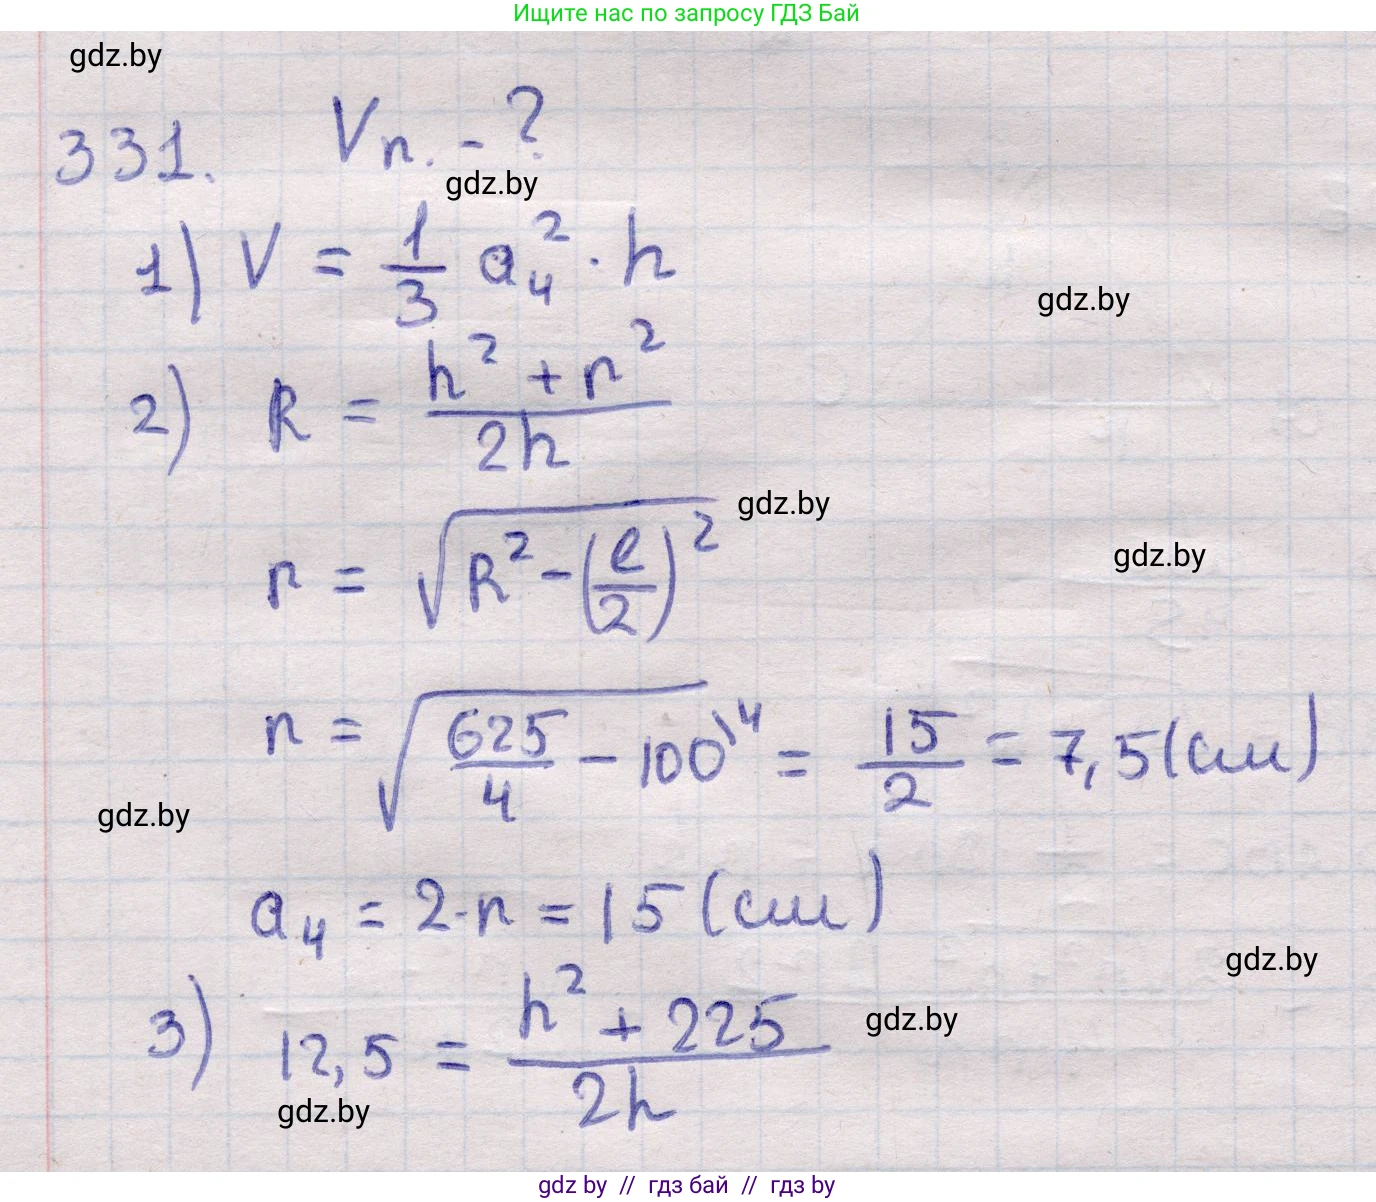 Ищите нас по запросу ГДЗ Бай
gdz.by
331. Vп. - ?
gdz.by
1) V = 1/3 a₄² · h
gdz.by
2) R = (h² + r²)/(2h)
gdz.by
r = √(R² - (l/2)²)
gdz.by
r = √(625/4 - 100\4) = 15/2 = 7,5 (см)
gdz.by
a₄ = 2·r = 15 (см)
gdz.by
3) 12,5 = (h² + 225)/(2h)
gdz.by
gdz.by
gdz by // гдз бай // гдз by